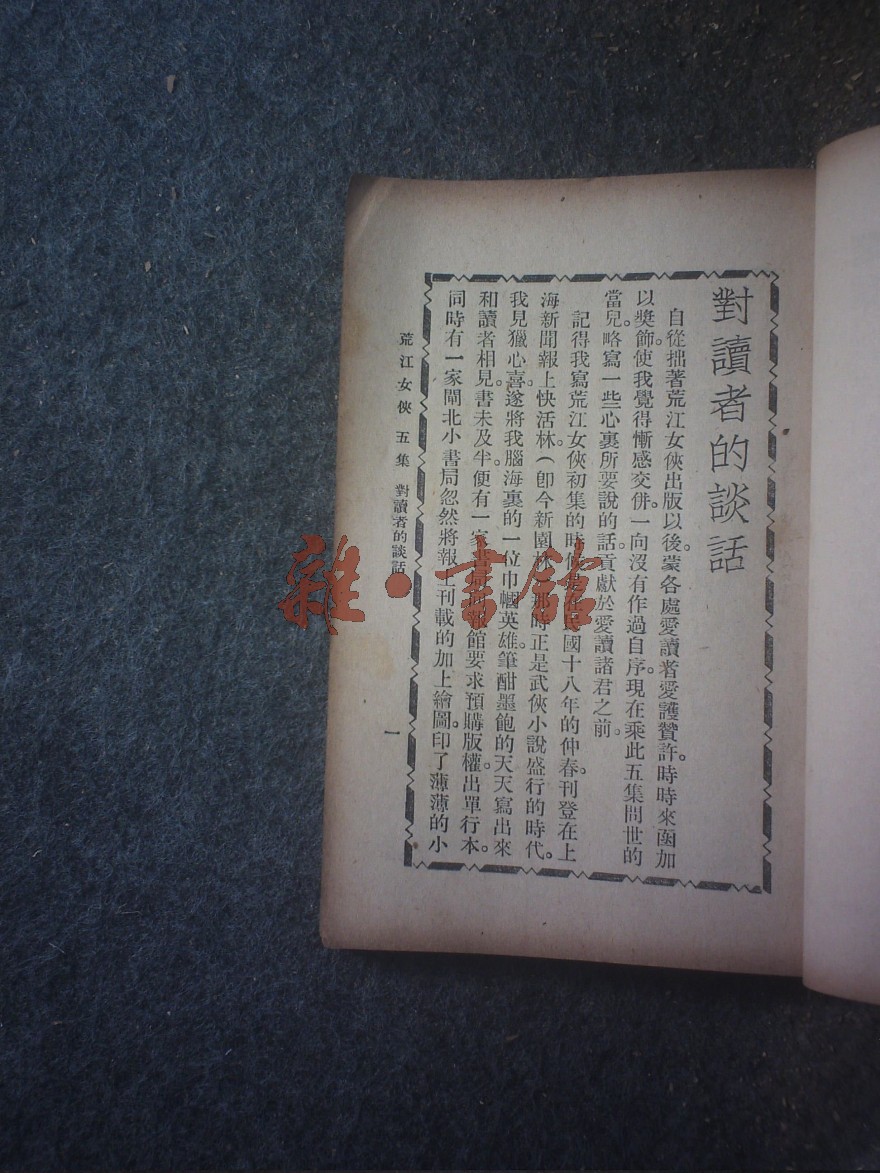 對讀者的談話
自從拙著荒江女俠出版以後。蒙各處愛讀者愛護贊許。時時來函加
以獎飾。使我覺得慚感交併。一向沒有作過自序。現在乘此五集問世的
當兒。略寫一些心裏所要說的話。貢獻於愛讀諸君之前。
記得我寫荒江女俠初集的時候國十八年的仲春。刊登在上
海新聞報上快活林。(卽今新園林)那時正是武俠小說盛行的時代。
我見獵心喜。遂將我腦海裏的一位巾幗英雄。筆酣墨飽的天天寫出來
和讀者相見。書未及半。便有一家報館要求預購版權。出單行本。
同時有一家閘北小書局忽然將報上刊載的加上繪圖。印了薄薄的小
荒江女俠 五集 對讀者的談話
一
雜·書館